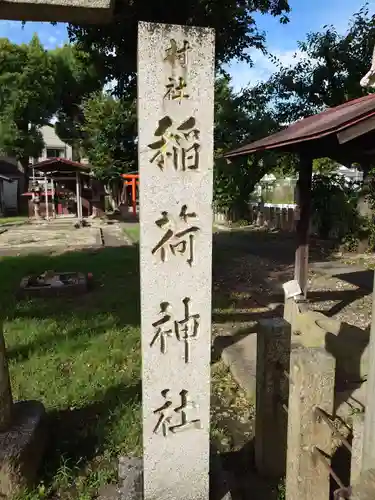 村社
稲荷神社